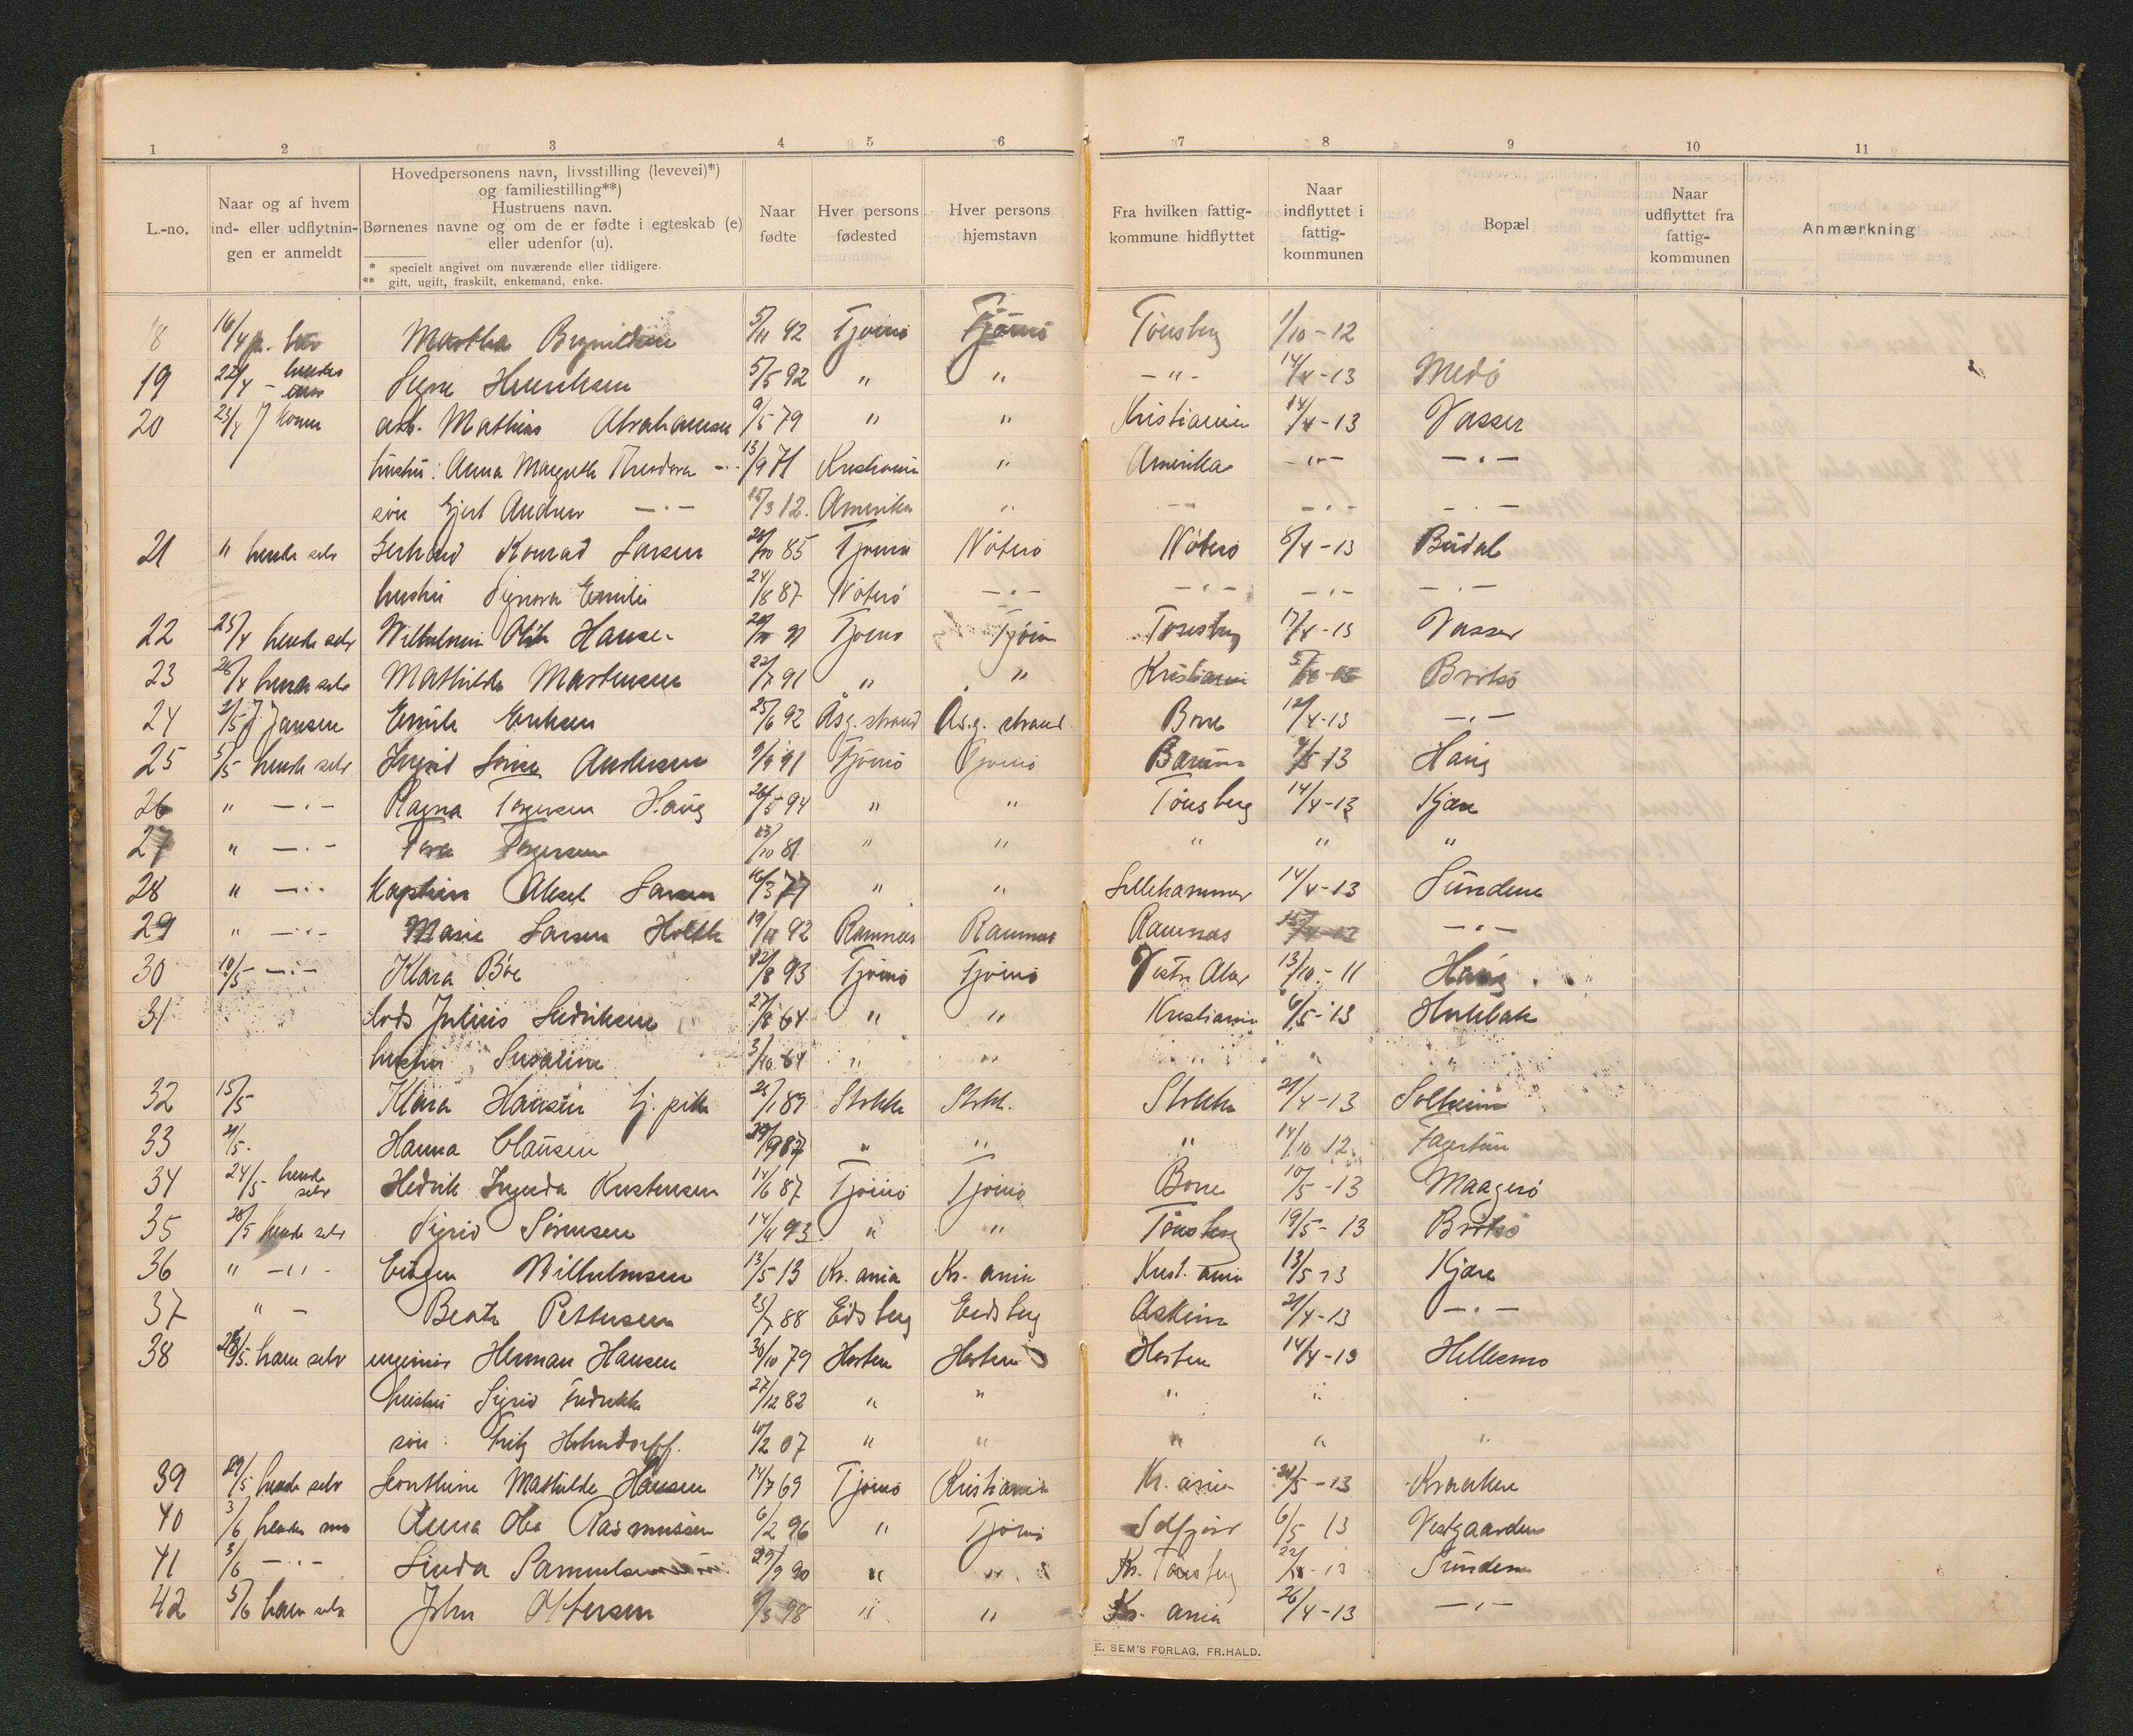 1 2 3 4 5 6 7 8 9 10 11
L.-no.
Naar og af hvem ind- eller udflytningen er anmeldt
Hovedpersonens navn, livsstilling (levevei)*)
og familiestilling**)
Hustruens navn.
Børnenes navne og om de er fødte i egteskab (e)
eller udenfor (u).
* specielt angivet om nuværende eller tidligere.
** gift, ugift, fraskilt, enkemand, enke.
Naar fødte
Hver persons fødested
Hver persons hjemstavn
Fra hvilken fattigkommune hidflyttet
Naar indflyttet i fattigkommunen
Bopæl
Naar udflyttet fra fattigkommunen
Anmærkning
18 16/4 Martha Brynildsen 5/11 92 Tjømø Tjømø Tønsberg 1/10-12
19 22/4 - hendes Signe Henriksen 5/5 92 " " -"- 14/4-13 Medø
20 23/4 arb. Mathias Abrahamsen 9/5 79 " " Kristiania 14/4-13 Vasser
hustru: Anna Margrethe Theodora -"- 13/9 71 Kristiania " Amerika -"- -"-
søn Andrew -"- 15/3 12. Amerika " -"- -"- -"-
21 " hende selv Gerhard Konrad Larsen 85 Tjømø Nøterø Nøterø 8/4-13 Budal
hustru Signora Emilie 24/8 87 Nøterø -"- -"- -"- -"-
22 25/4 hende selv Wilhelmine Hansen Tjømø Tjømø Tønsberg 17/4-13 Vasser
23 26/4 hende selv Mathilde Martinsen 22/7 91 " " Kristiania Brøtsø
24 2/5 J Jansen Emilie Eriksen 25/6 92 Åsg. strand Ås.g. strand Borre 12/4-13 -"-
25 5/5 hende selv Ingrid Andersen 9/9 91 Tjømø Tjømø Bærum 13 Haug
26 " -"- Ragna Torgersen Haug 26/5 94 " " Tønsberg 14/4-13 Kjære
27 " -"- Torgersen 23/10 81 " " " " "
28 " -"- Kaptein Aksel Larsen 16/3 79 " " Lillehammer 14/4-13 Sundene
29 " -"- Marie Larsen Holth 19/11 92 Ramnæs Ramnæs Ramnæs -"-
30 10/5 -"- Klara Bøe 12/8 93 Tjømø Tjømø Vestre Aker 13/10-11 Haug
31 lods Julius Fredriksen 27/8 64 " " Kristiania 6/5-13
hustru Susaline 3/10 64 " " " " "
32 15/5 Klara Hansen tj. pike 89 Stokke Stokk. Stokke 21/4-13 Solheim
33 21/5. Hanna Clausen 87 " " " 14/10 12 Fagertun
34 24/5 hende selv Hedvik Kristensen 14/6 87 Tjømø Tjømø Borre 10/5-13 Maagerø
35 26/5 hende selv Sigrid Sørensen 14/11 93. " " Tønsberg 19/5-13 Brøtsø
36 " -"- Eugen Wilhelmsen 13/5 13 Kr. ania Kr. ania Krist. ania 13/5 13 Kjære
37 " - Beate Pettersen 25/7 88 Eidsberg Eidsberg Askim 21/4-13 -"-
38 28/5. ham selv ingeniør Herman Hansen 30/10 79 Horten Horten Horten 14/4-13 Hellesmo
hustru Sigrid Fredrikke 27/12 82 " " " "
søn: Fritz Hohndorff. 10/2 07 " " " " "
39 29/5 hende selv Leonthine Mathilde Hansen 14/7 69 Tjømø Kristiania Kr. ania 28/5-13 Kraakere
40 3/6 hendes mor Anna Rasmussen 6/2 96 " Tjømø 6/5 13 Vestgaarden
41 3/6 -"- Linda Samuelsen 29/9 90 " " Tønsberg 22/4-13 Sundene
42 5/6 ham selv John Ottersen 98 " " Kr. ania 26/4-13 -"-
E. SEM'S FORLAG, FR.HALD.